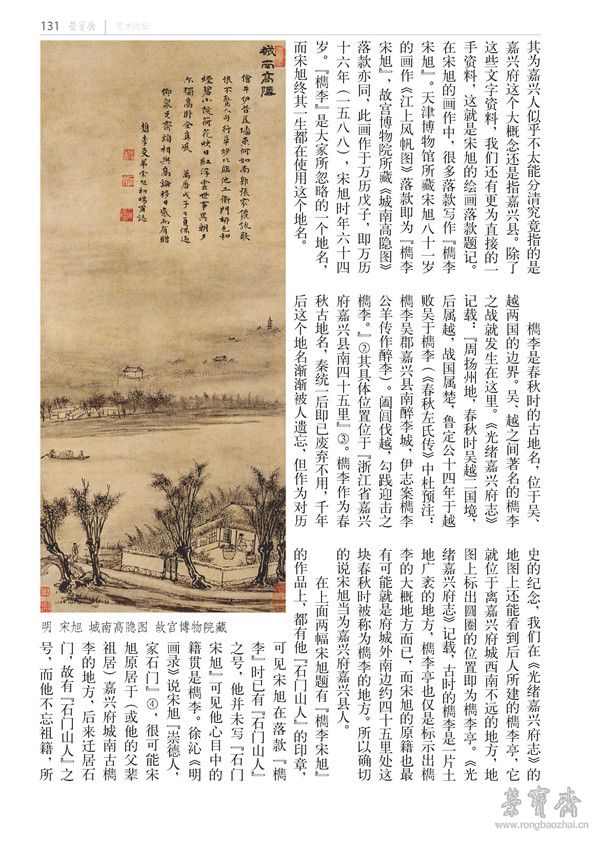 131 荣宝斋 艺术论坛
其为嘉兴人似乎不太能分清究竟指的是
嘉兴府这个大概念还是指嘉兴县。除了
这些文字资料，我们还有更为直接的一
手资料，这就是宋旭的绘画落款题记。
在宋旭的画作中，很多落款写作『檇李
宋旭』。天津博物馆所藏宋旭八十一岁
的画作《江上风帆图》落款即为『檇李
宋旭』，故宫博物院所藏《城南高隐图》
落款亦同，此画作于万历戊子，即万历
十六年（一五八八），宋旭时年六十四
岁。『檇李』是大家所忽略的一个地名，
而宋旭终其一生都在使用这个地名。
檇李是春秋时的古地名，位于吴、
越两国的边界。吴、越之间著名的檇李
之战就发生在这里。《光绪嘉兴府志》
记载：『周扬州地，春秋时吴越二国境，
后属越，战国属楚，鲁定公十四年于越
败吴于檇李（《春秋左氏传》中杜预注：
檇李吴郡嘉兴县南醉李城，伊志案檇李
公羊传作醉李）。阖闾伐越，勾践迎击之
檇李。』②其具体位置位于『浙江省嘉兴
府嘉兴县南四十五里』③。檇李作为春
秋古地名，秦统一后即已废弃不用，千年
后这个地名渐渐被人遗忘，但作为对历
史的纪念，我们在《光绪嘉兴府志》的
地图上还能看到后人所建的檇李亭，它
就位于离嘉兴府城西南不远的地方，地
图上标出圆圈的位置即为檇李亭。《光
绪嘉兴府志》记载，古时的檇李是一片土
地广袤的地方，檇李亭也仅是标示出檇
李的大概地方而已，而宋旭的原籍也最
有可能就是府城外南边约四十五里处这
块春秋时被称为檇李的地方。所以确切
的说宋旭当为嘉兴府嘉兴县人。
在上面两幅宋旭题有『檇李宋旭』
的作品上，都有他『石门山人』的印章，
可见宋旭在落款『檇
李』时已有『石门山人』
之号，他并未写『石门
宋旭』可见他心目中的
籍贯是檇李。徐沁《明
画录》说宋旭『崇德人，
家石门』④，很可能宋
旭原居于（或他的父辈
祖居）嘉兴府城南古檇
李的地方，后来迁居石
门，故有『石门山人』之
号，而他不忘祖籍，所
城南高隱
明 宋旭 城南高隐图 故宫博物院藏
荣宝斋
www.rongbaozhai.cn